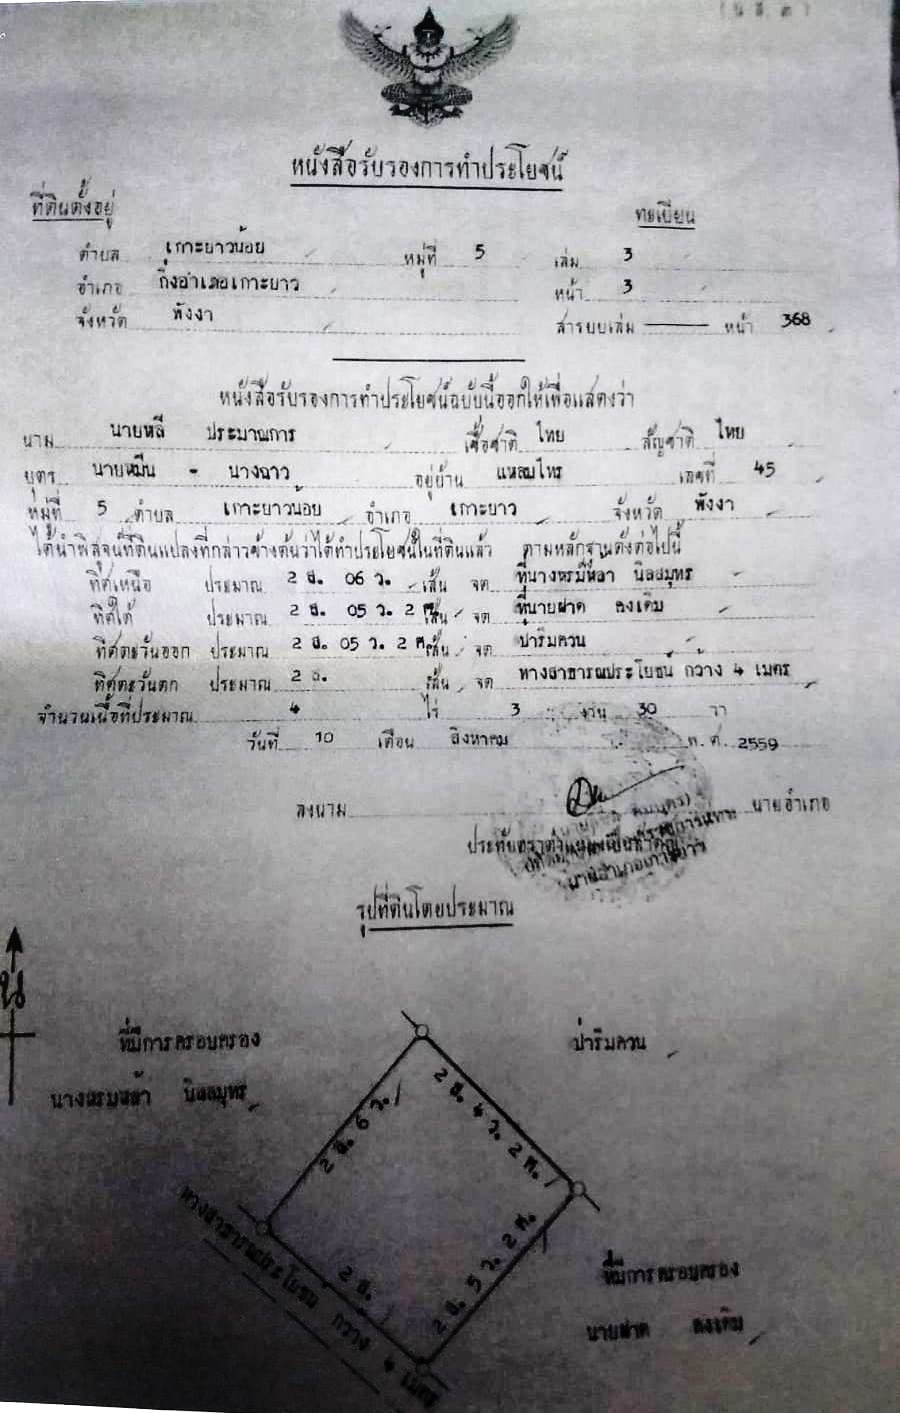 (น.ส. ๓)
หนังสือรับรองการทำประโยชน์
ที่ดินตั้งอยู่
ทะเบียน
ตำบล เกาะยาวน้อย หมู่ที่ 5 เล่ม 3
อำเภอ กิ่งอำเภอเกาะยาว หน้า 3
จังหวัด พังงา สารบบเล่ม — หน้า 368
หนังสือรับรองการทำประโยชน์ฉบับนี้ออกให้เพื่อแสดงว่า
นาม นายหลี ประมาณการ เชื้อชาติ ไทย สัญชาติ ไทย
บุตร นายหมีน - นางฉาว อยู่บ้าน แหลมไทร เลขที่ 45
หมู่ที่ 5 ตำบล เกาะยาวน้อย อำเภอ เกาะยาว จังหวัด พังงา
ได้นำพิสูจน์ที่ดินแปลงที่กล่าวข้างต้นว่าได้ทำประโยชน์ในที่ดินแล้ว ตามหลักฐานดังต่อไปนี้
ทิศเหนือ ประมาณ 2 ส. 06 ว. เส้น จด ที่นางหรมีหลา นิลสมุทร
ทิศใต้ ประมาณ 2 ส. 05 ว. 2 ศ. เส้น จด ที่นายฝาด คงเดิม
ทิศตะวันออก ประมาณ 2 ส. 05 ว. 2 ศ. เส้น จด ป่าริมควน
ทิศตะวันตก ประมาณ 2 ส. เส้น จด ทางสาธารณประโยชน์ กว้าง 4 เมตร
จำนวนเนื้อที่ประมาณ 4 ไร่ 3 งาน 30 วา
วันที่ 10 เดือน สิงหาคม พ.ศ. 2559
ลงนาม นายอำเภอ
ประทับตราตำแหน่งเป็นสำคัญ
นายอำเภอเกาะยาว
รูปที่ดินโดยประมาณ
น
ที่มีการครอบครอง
ป่าริมควน
นิลสมุทร
2 ส. 6 ว.
2 ส. 4 ว. 2 ศ.
ทางสาธารณประโยชน์ กว้าง 4 เมตร
2 ส.
2 ส. 5 ว. 2 ศ.
ที่มีการครอบครอง
นายฝาด คงเดิม